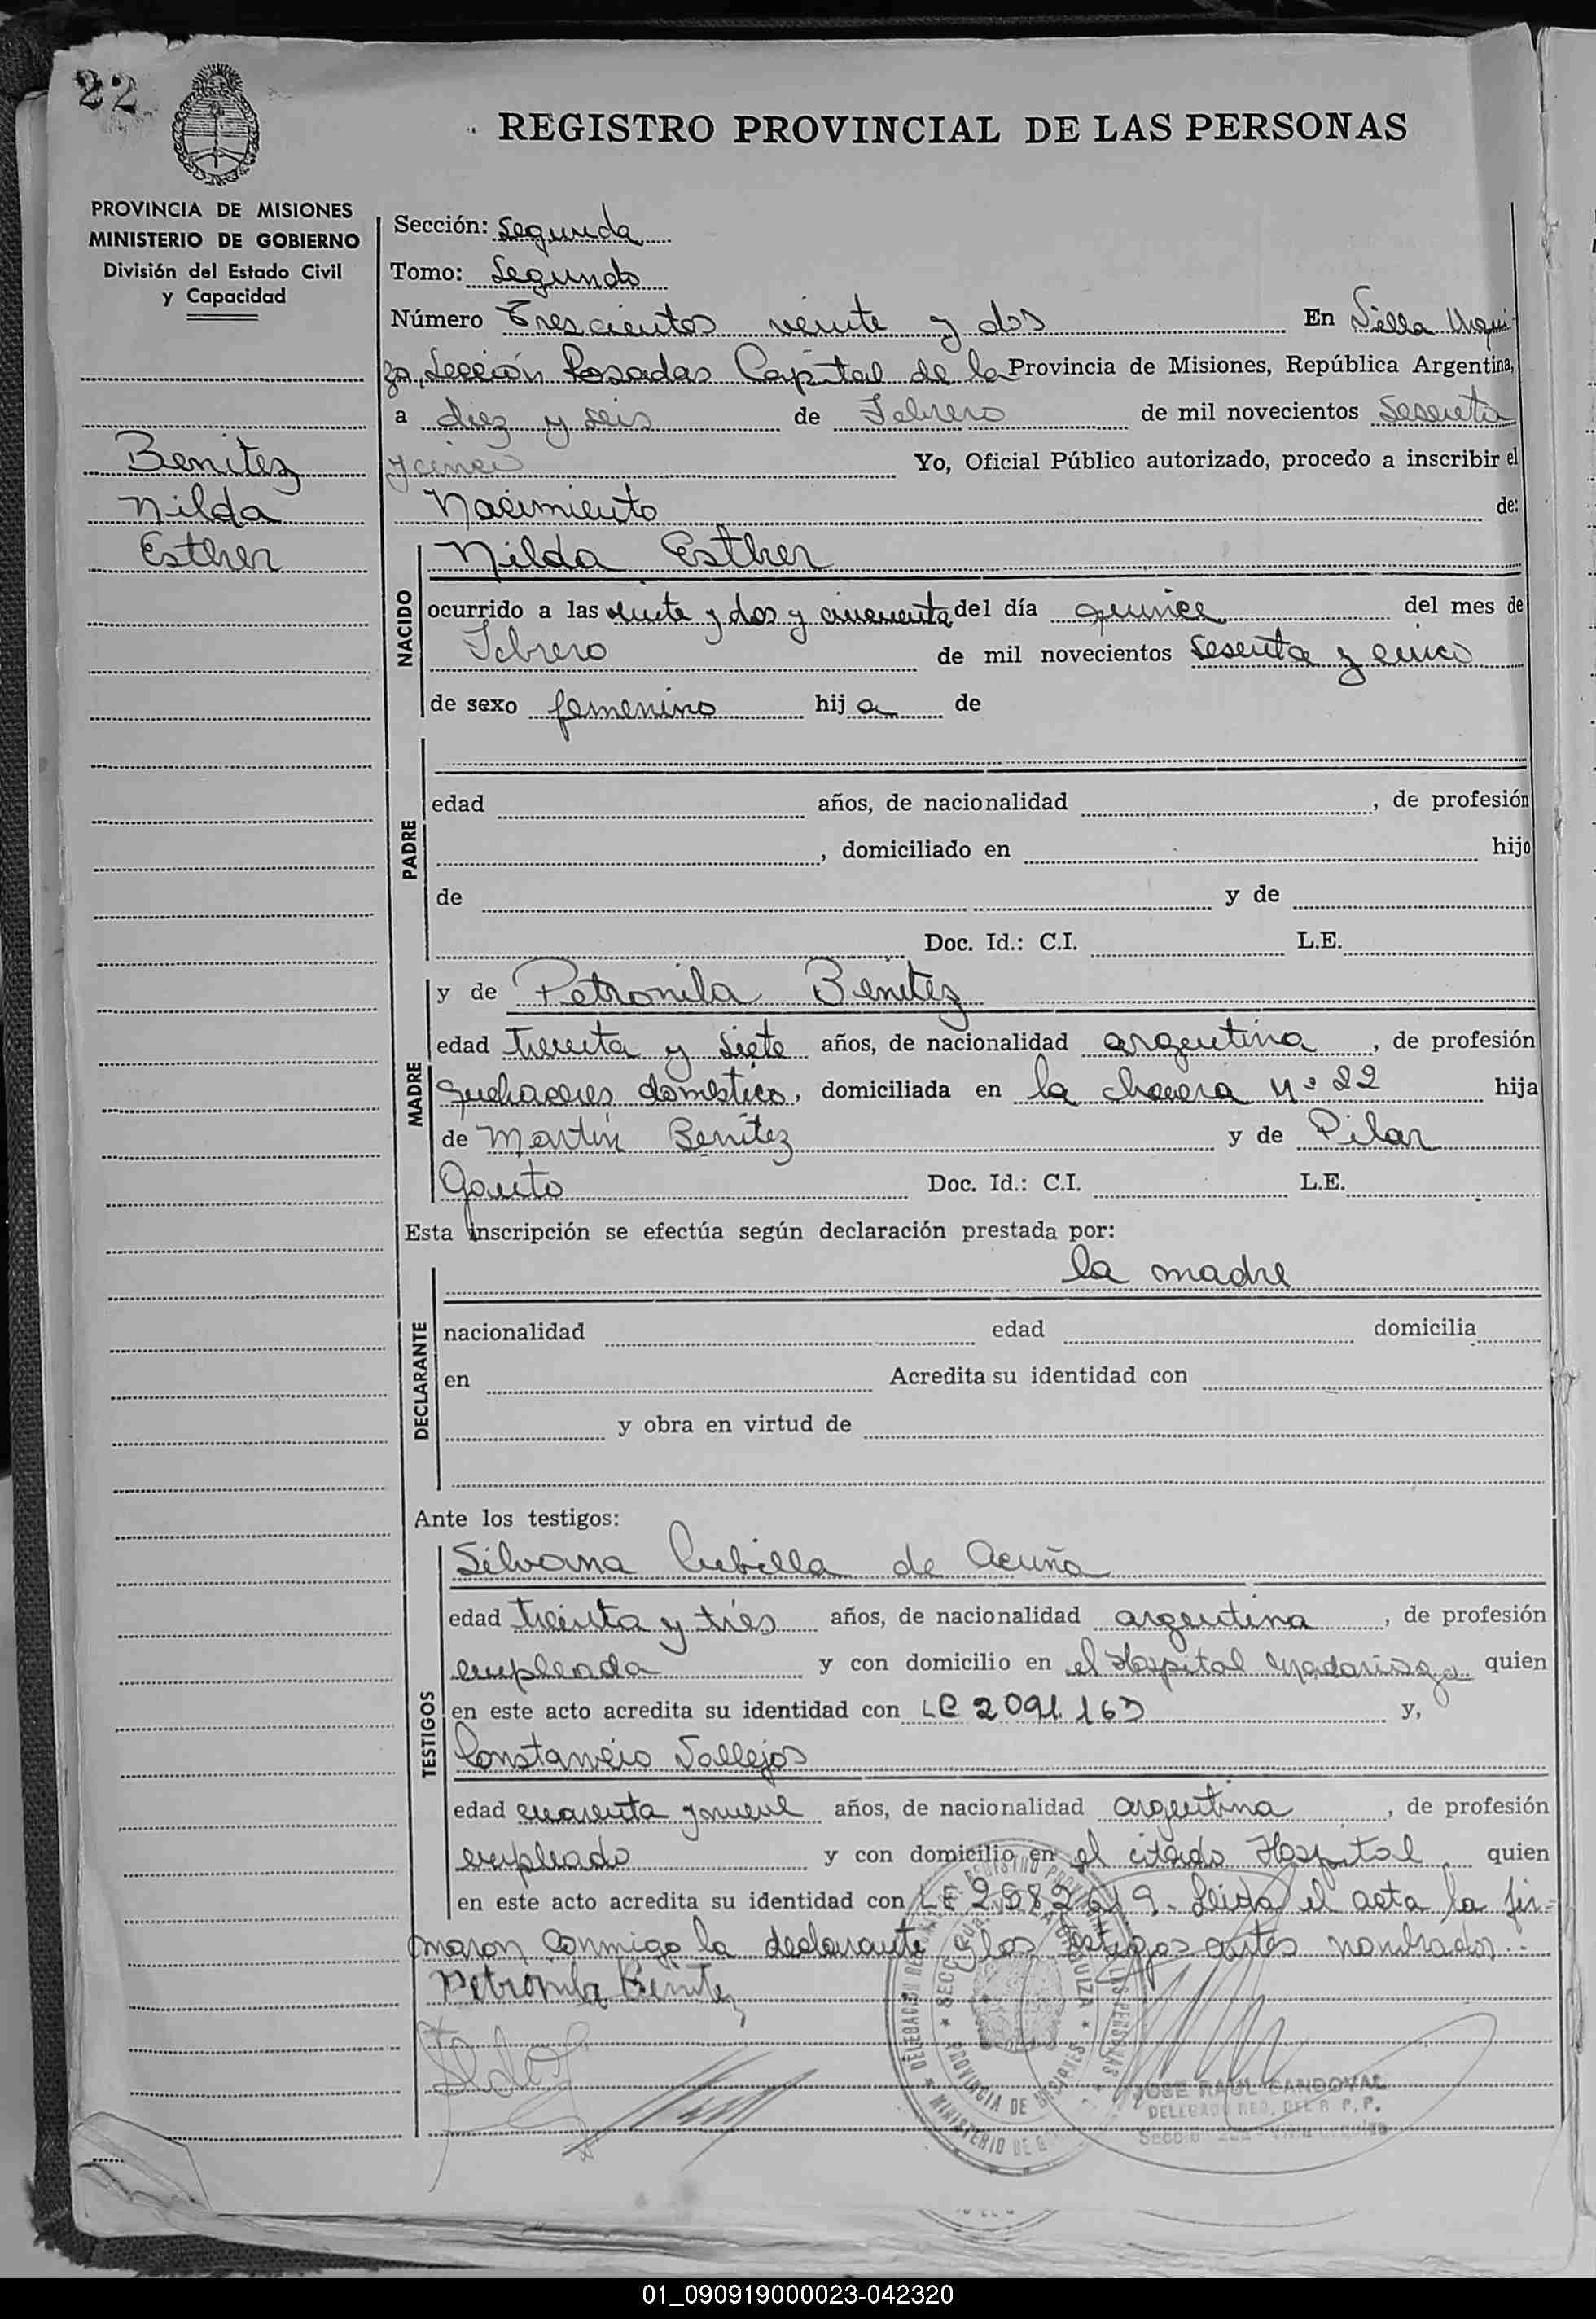 22
REGISTRO PROVINCIAL DE LAS PERSONAS
PROVINCIA DE MISIONES
MINISTERIO DE GOBIERNO
División del Estado Civil
y Capacidad
Benitez
Nilda
Esther
Sección: Segunda
Tomo: Segundo
Número Trescientos veinte y dos En Villa Urqui
za, Sección Posadas Capital de la Provincia de Misiones, República Argentina,
a diez y seis de Febrero de mil novecientos Sesenta
y cinco Yo, Oficial Público autorizado, procedo a inscribir el
Nacimiento de:
NACIDO
Nilda Esther
ocurrido a las veinte y dos y cincuenta del día quince del mes de
Febrero de mil novecientos Sesenta y cinco
de sexo femenino hija de
PADRE
edad años, de nacionalidad , de profesión
, domiciliado en hijo
de y de
Doc. Id.: C.I. L.E.
MADRE
y de Petronila Benitez
edad treinta y siete años, de nacionalidad argentina, de profesión
quehaceres domésticos, domiciliada en la chacra Nº 22 hija
de Martín Benítez y de Pilar
Gauto Doc. Id.: C.I. L.E.
Esta inscripción se efectúa según declaración prestada por:
DECLARANTE
la madre
nacionalidad edad domicilia
en Acredita su identidad con
y obra en virtud de
Ante los testigos:
TESTIGOS
Silvana Cubilla de Acuña
edad treinta y tres años, de nacionalidad argentina, de profesión
empleada y con domicilio en el Hospital Madariaga quien
en este acto acredita su identidad con LC 2091.163 y,
Constancio Vallejos
edad cuarenta y nueve años, de nacionalidad argentina, de profesión
empleado y con domicilio en el citado Hospital quien
en este acto acredita su identidad con LE Leida el acta la fir-
maron conmigo la declarante y los testigos antes nombrados.-
Petronila Benitez
JOSE RAUL SANDOVAL
DELEGADO REG. DEL R.P.P.
01_090919000023-042320